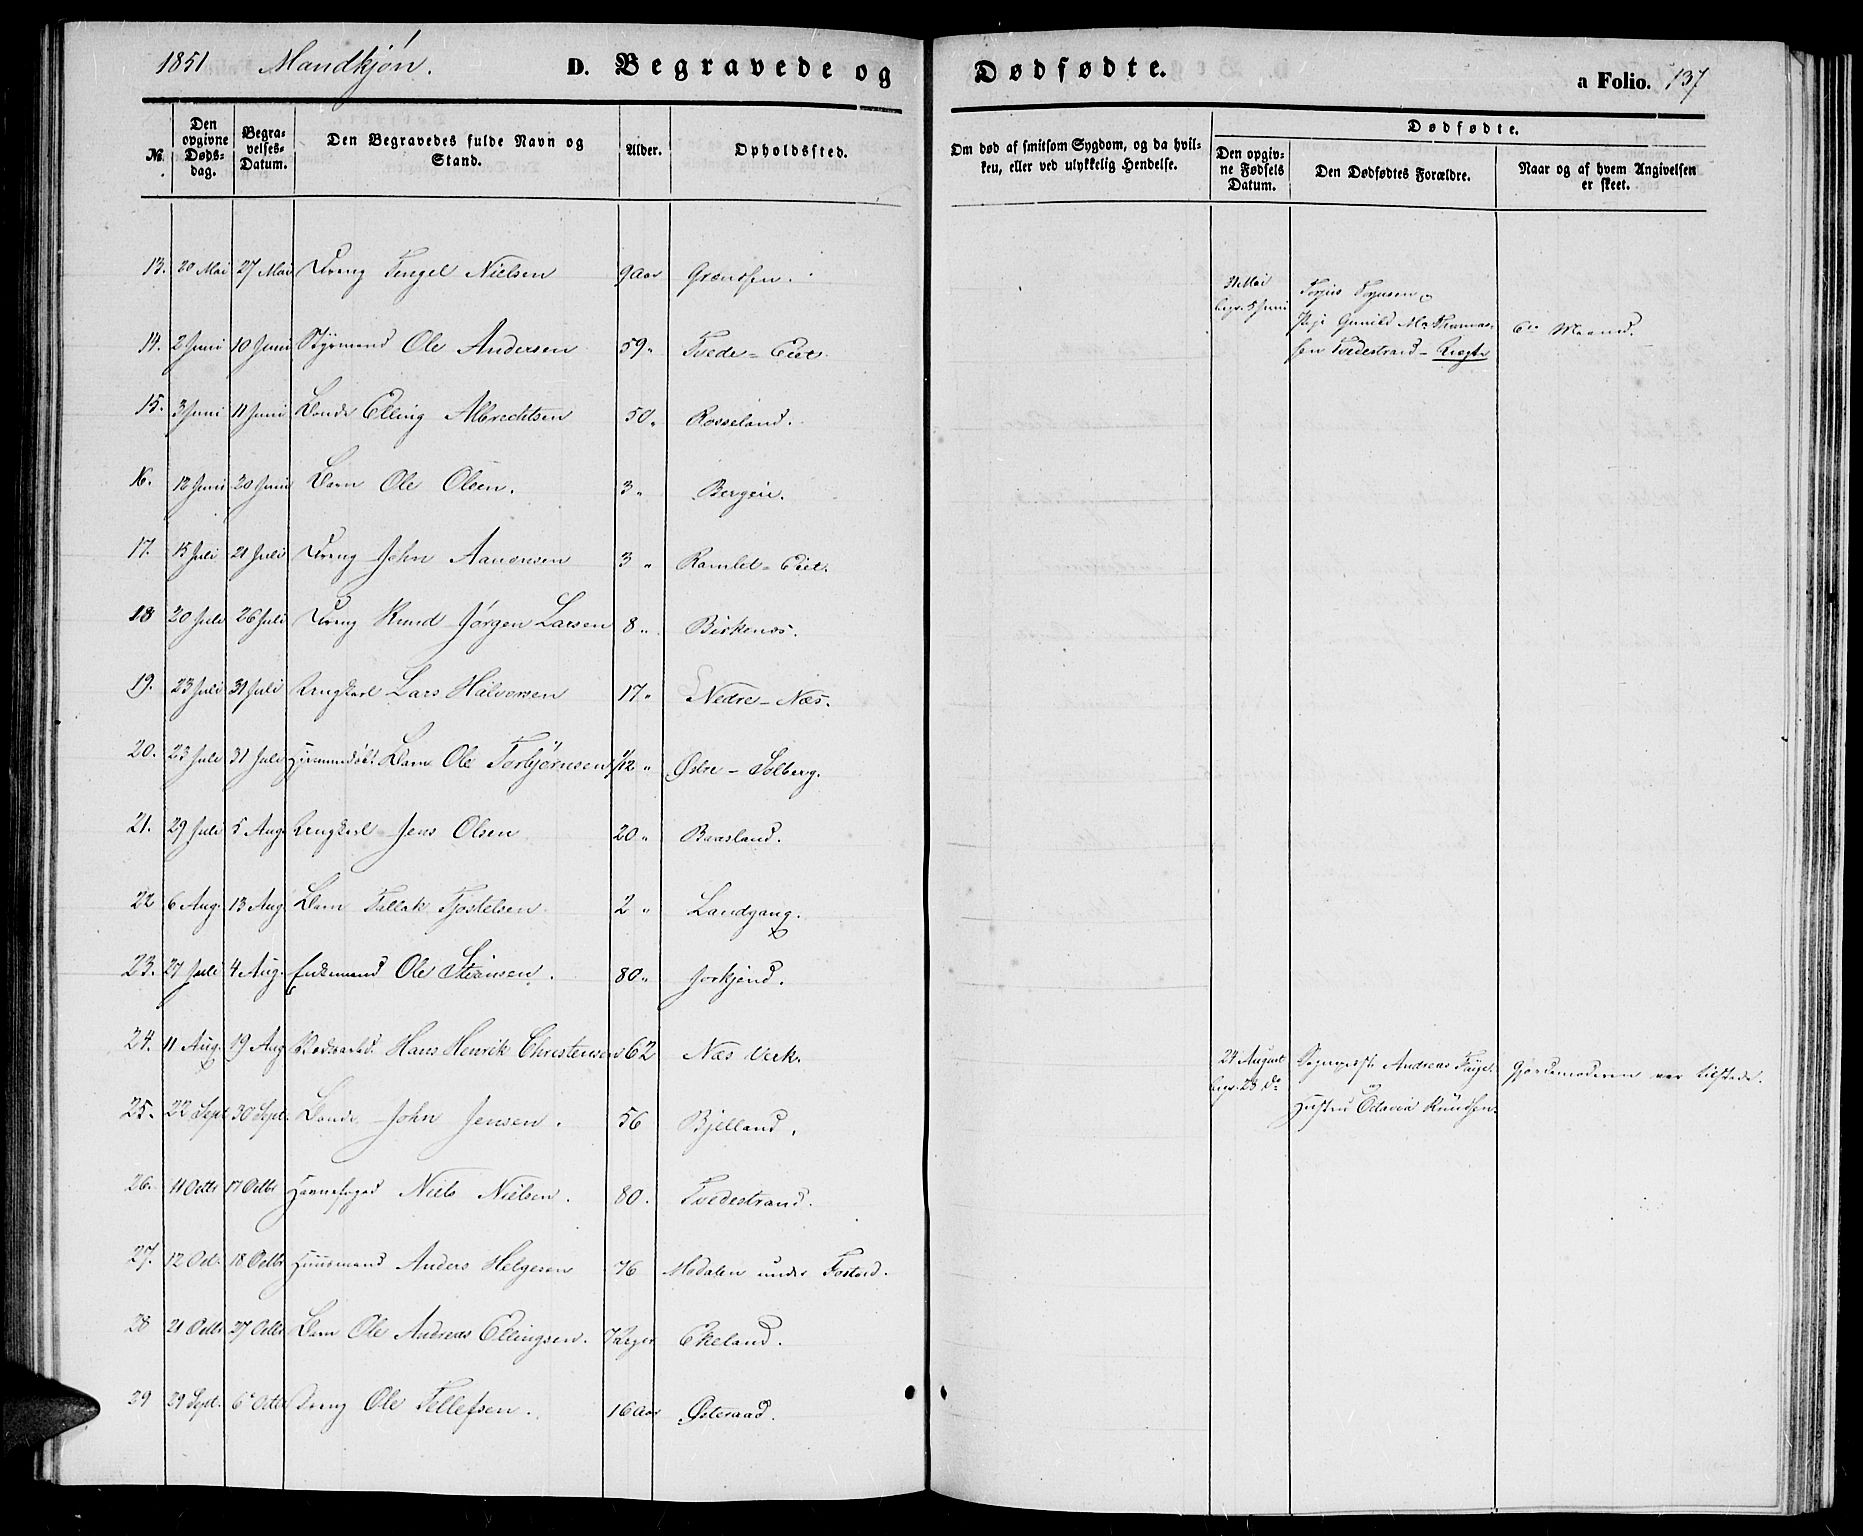 1851 Mandkjøn. D. Begravede og Dødfødte. a Folio. 137
№. Den opgivne Døds-dag. Begra-velses-Datum. Den Begravedes fulde Navn og Stand. Alder. Opholdssted. Om død af smitsom Sygdom, og da hvil-ken, eller ved ulykkelig Hendelse. Dødfødte. Den opgiv-ne Fødsels Datum. Den Dødfødtes Forældre. Naar og af hvem Angivelsen er skeet.
13. 20 Mai 27 Mai Dreng Tengel Nielsen 9 Aar Grændsen.
31 Mai begr. 5 Juni
14. 2 Juni 10 Juni Styrmand Ole Andersen 59 " Tvede-Eiet.
Pige Gunild Tvedestrand
15. 3 Juni 11 Juni Bonde Elling Albrechtsen 50 " Rosseland.
16. 12 Juni 20 Juni Barn Ole Olsen. 3 " Bergen.
17. 15 Juli 21 Juli Dreng John Aanonsen 3 " Ramlet-Eiet.
18 20 Juli 26 Juli Dreng Knud Jørgen Larsen 8 " Birkenæs.
19. 23 Juli 31 Juli Ungkarl Lars Halvorsen 17 " Nedre-Næs.
20. 23 Juli 31 Juli Hjemmedøbt Barn Ole Torbjørnsen 1/12 " Østre-Solberg.
21. 29 Juli 5 Aug. Ungkarl Jens Olsen 20 " Baasland.
22 6 Aug. 13 Aug. Barn Tallak Tjostelsen 2 " Landgang.
23. 27 Juli 4 Aug. Enkemand Ole Steensen. 80 " Jorkjend.
24. 11 Aug. 19 Aug Hans Henrik Christensen 62 Næs Verk.
24 August begr. 28 do Andreas Gjordemoderen var tilstede.
Hustru Octavia Knudsen.
25. 22 Sept 30 Sept. Bonde John Jensen. 56 Bjelland.
26. 11 Octbr 17 Octbr Havnefoged Niels Nielsen. 80. Tvedestrand.
27. 12 Oct. 18 Octbr Huusmand Anders Helgesen 76 Modalen under Fosted.
28 21 Octbr 27 Octbr Barn Ole Andreas Ellingsen. 7 Dager Ekeland.
29 29 Sept. 6 Octbr Dreng Ole Tellefsen. 16 Aar Østeraad.